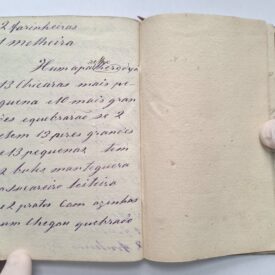 2 Farinheiras
1 molheira
Hum aparelho
13 chicaras mais pe
quena e 10 mais gran
des e quebrarão se 2
tem 13 pires grandes
e 13 pequenas, tem
2 bules mantegueira
assucareiro leiteira
e 2 pratos com azinhas
um chegou quebrado